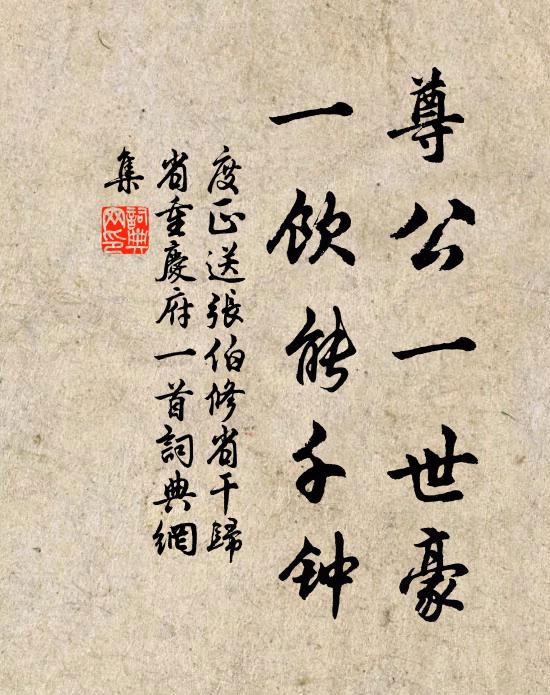 尊公一世豪
一饮能千钟
度正送張伯修省干歸
省重慶府一首詞典網
集
詞典
网印